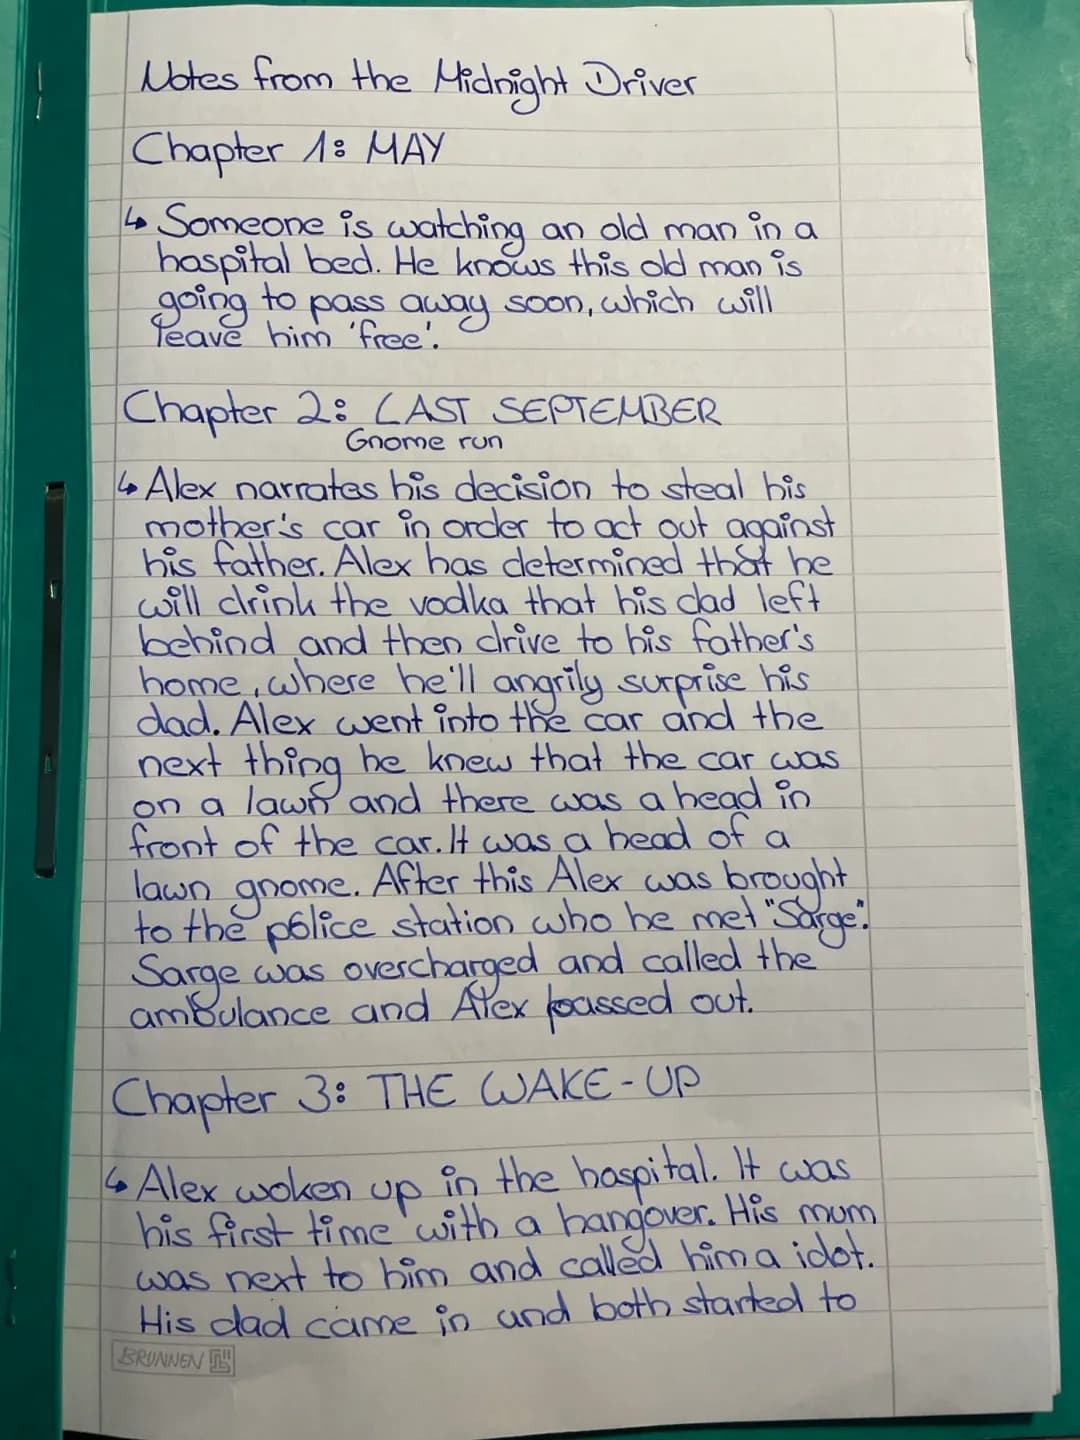 Notes from the Midnight Driver
Chapter 1: MAY
↳ Someone is watching an old man in a
hospital bed. He knows this old man is
going to pass away soon, which will
leave him 'free'.
Chapter 2: LAST SEPTEMBER
Gnome run
↳ Alex narrates his decision to steal his
mother's car in order to act out against
his father. Alex has determined that he
will drink the vodka that his dad left
behind and then drive to his father's
home, where he'll angrily surprise his
dad. Alex went into the car and the
next thing he knew that the car was
on a lawn and there was a head in
front of the car. It was a head of a
lawn gnome. After this Alex was brought
to the police station who he met "Sarge".
Sarge was overcharged and called the
ambulance and Alex passed out.
Chapter 3: THE WAKE-UP
↳ Alex woken up in the hospital. It was
his first time with a hangover. His mum
was next to him and called him a idot.
His dad came in and both started to
BRUNNEN